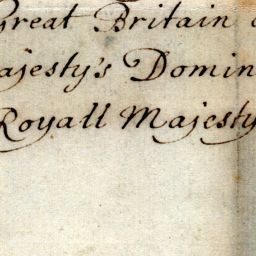 Great Britain
ajesty's Domin
Royall Majesty